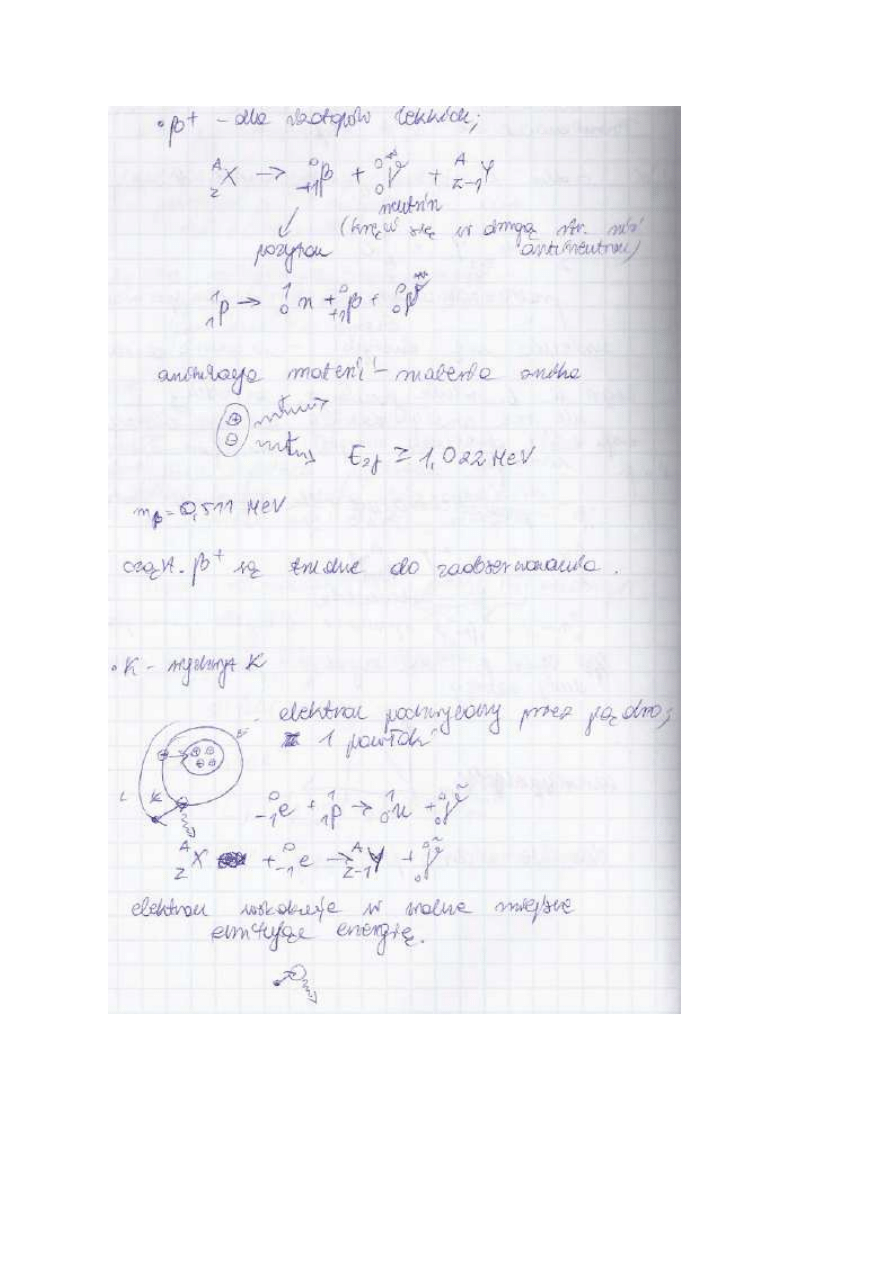 • β⁺ – dla izotopów lekkich;
ᴬ_Z X → ⁰_+1 β + ⁰_0 ν + ᴬ_Z-1 Y
neutrin
(kręci się w drugą str. niż
pozyton antineutrino)
¹_1 p → ¹_0 n + ⁰_+1 β + ⁰_0 ν
anihilacja materii – materia
E_2γ ≥ 1,022 MeV
m_β = 0,511 MeV
cząst. β⁺ są trudne do zaobserwowania.
• K – wychwyt K
– elektron podchwycony przez jądro;
z 1 powłoki
L K
⁰_-1 e + ¹_1 p → ¹_0 n + ⁰_0 ν
ᴬ_Z X + ⁰_-1 e → ᴬ_Z-1 Y + ⁰_0 ν
elektron wskakuje w wolne miejsce
emitując energię.